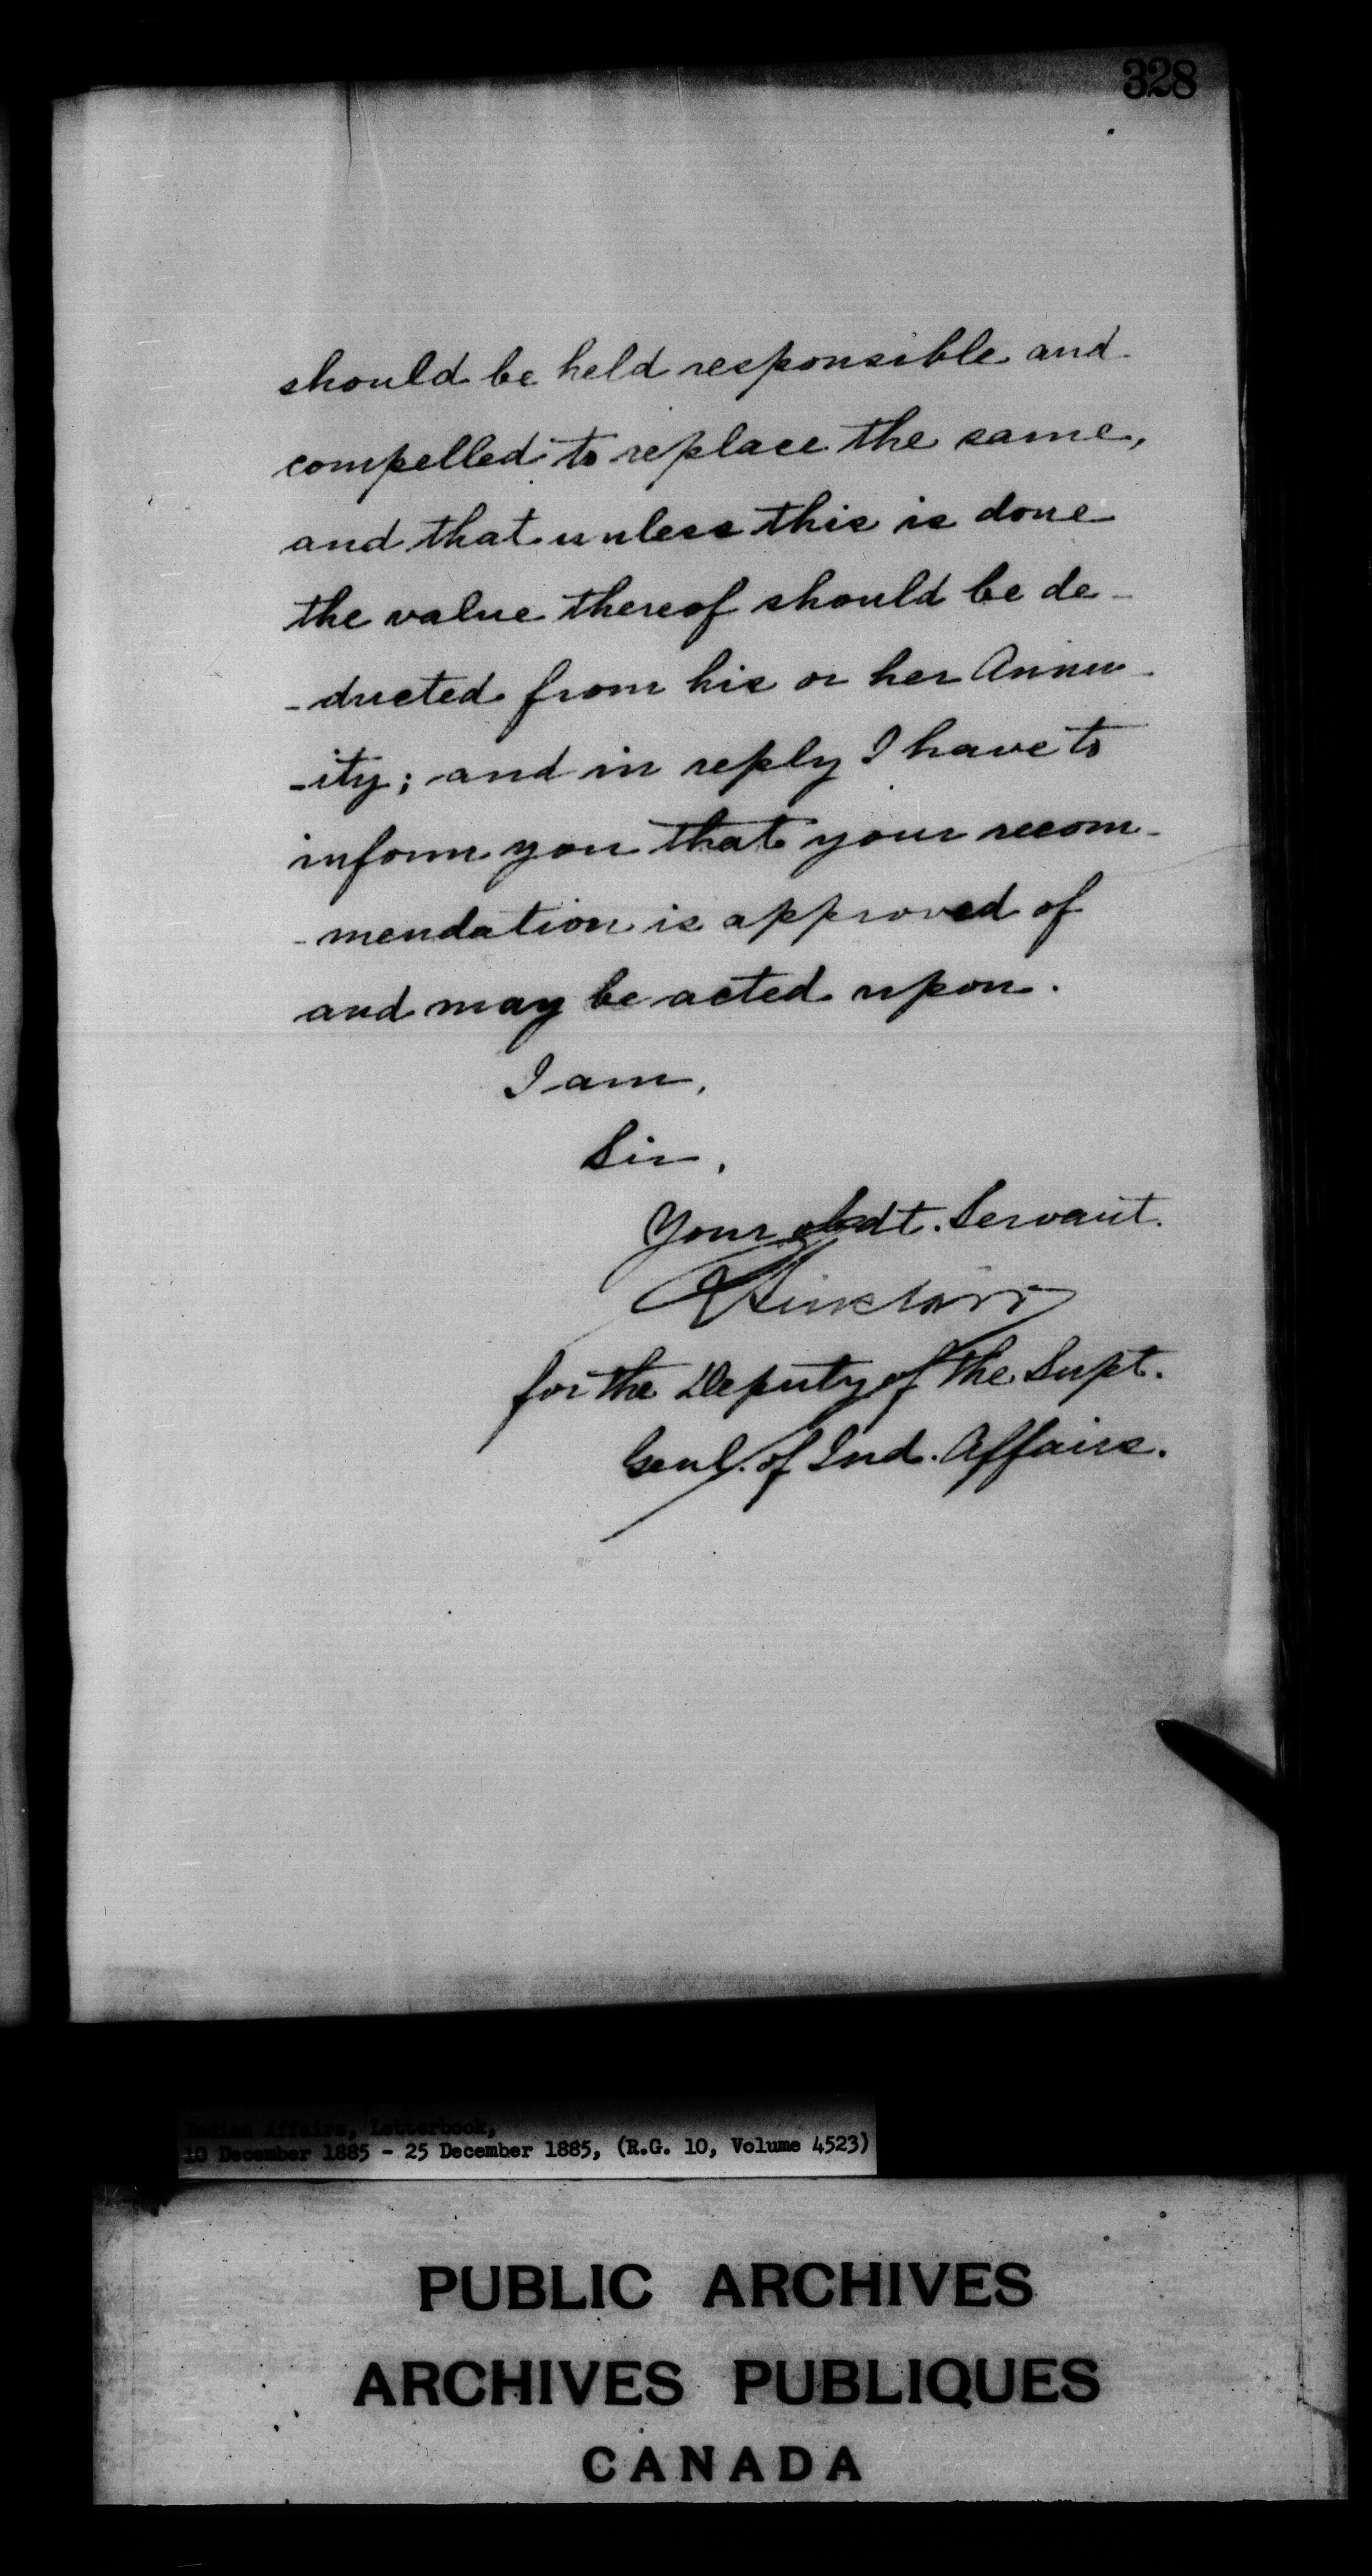 328
should be held responsible and
compelled to replace the same,
and that unless this is done
the value thereof should be de-
-ducted from his or her Annu-
-ity; and in reply I have to
inform you that your recom-
-mendation is approved of
and may be acted upon.
I am,
Sir,
Your obdt. Servant.
for the Deputy of the Supt.
Genl. of Ind. Affairs.
Indian Affairs, Letterbook,
10 December 1885 - 25 December 1885, (R.G. 10, Volume 4523)
PUBLIC ARCHIVES
ARCHIVES PUBLIQUES
CANADA